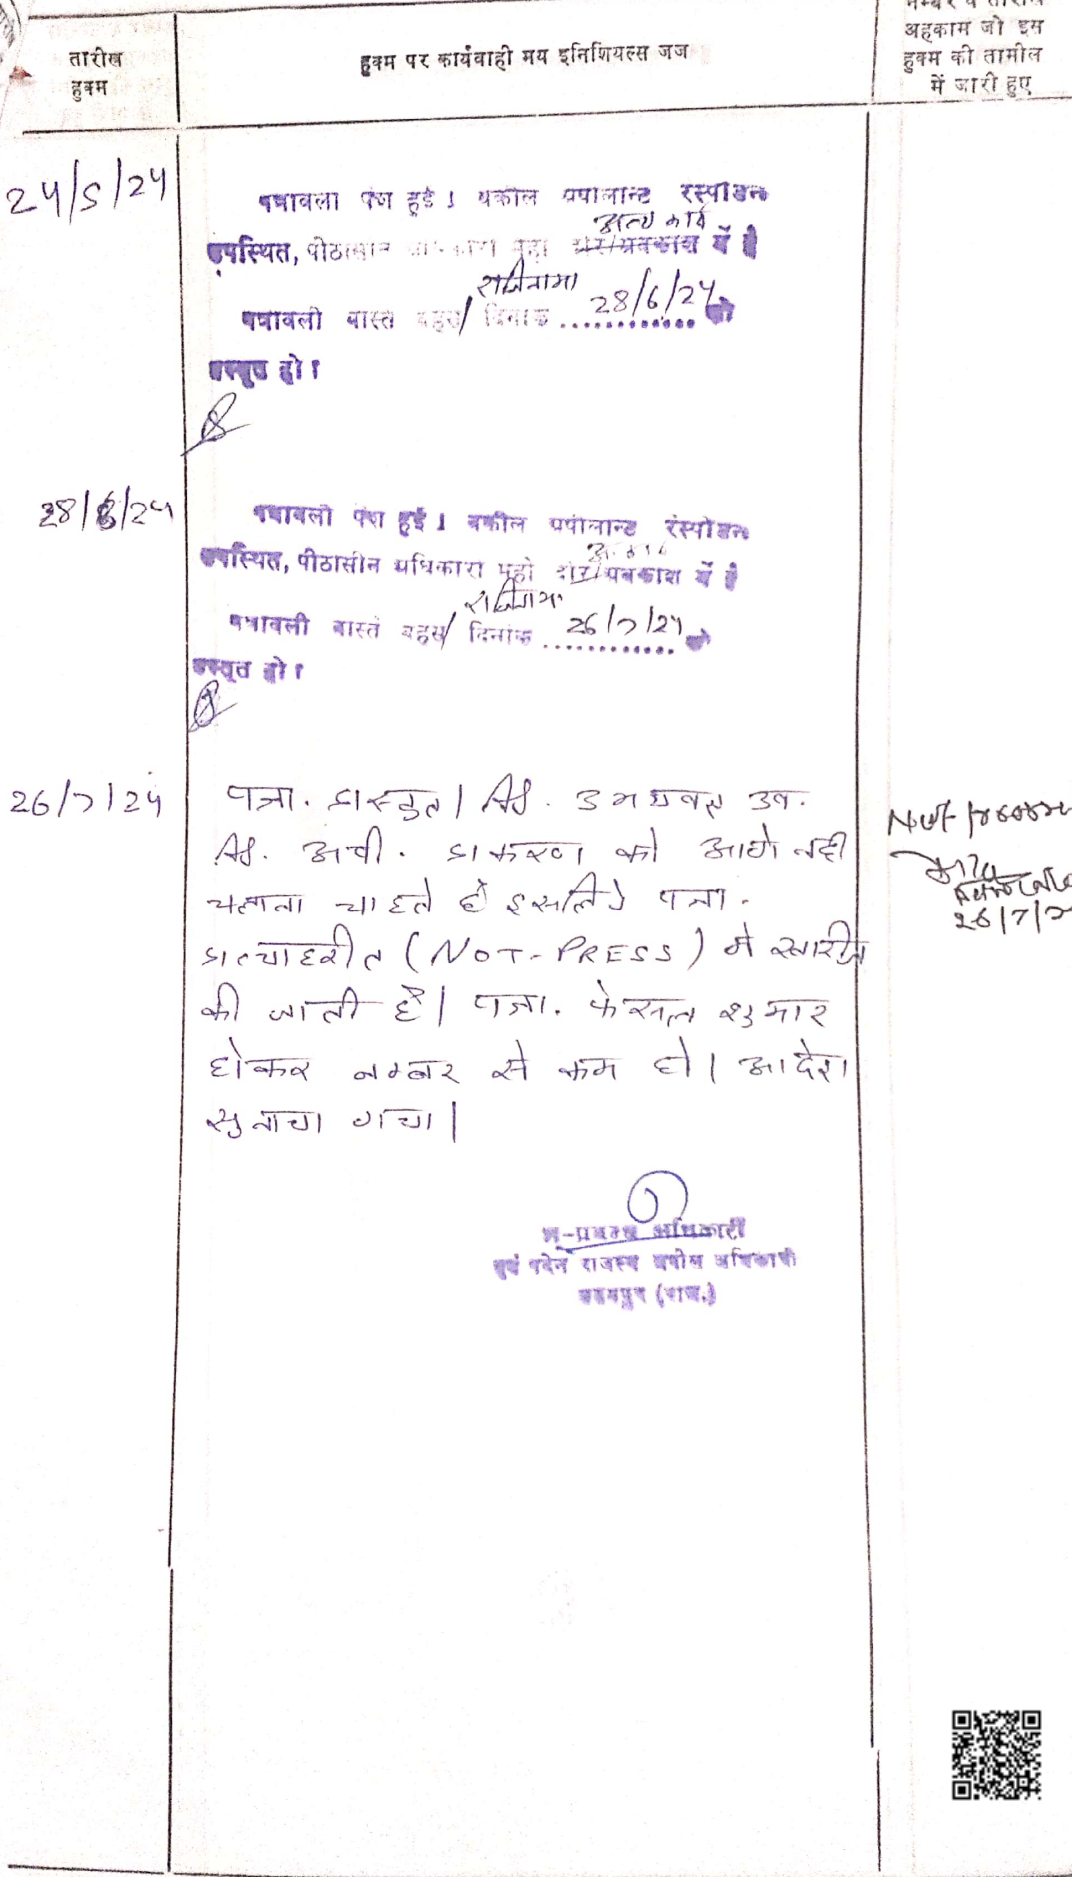 तारीख
हुक्म
हुक्म पर कार्यवाही मय इनिशियल्स जज
नम्बर व तारीख
अहकाम जो इस
हुक्म की तामील
में जारी हुए
24/5/24
पत्रावली पेश हुई। वकील अपीलान्ट रेस्पोडेन्ट
अन्य कार्य
उपस्थित, पीठासीन अधिकारी महो दौरे/अवकाश में है
राजीनामा
पत्रावली वास्ते बहस/ दिनांक 28/6/24 को
प्रस्तुत हो।
28/6/24
पत्रावली पेश हुई। वकील अपीलान्ट रेस्पोडेन्ट
उपस्थित, पीठासीन अधिकारी महो दौरे/अवकाश में है
राजीनामा
पत्रावली वास्ते बहस/ दिनांक 26/7/24 को
प्रस्तुत हो।
26/7/24
पत्रा. प्रस्तुत। Ad. उभयपक्ष उप.
Ad. अपी. प्रकरण को आगे नही
चलाना चाहते है इसलिये पत्रा.
प्रत्याहरीत (NOT-PRESS) मे खारीज
की जाती है। पत्रा. फेसल शुमार
होकर नम्बर से कम हो। आदेश
सुनाया गया।
Not
26/7/2
भू-प्रबन्ध अधिकारी
एवं पदेन राजस्व अपील अधिकारी
उदयपुर (राज.)